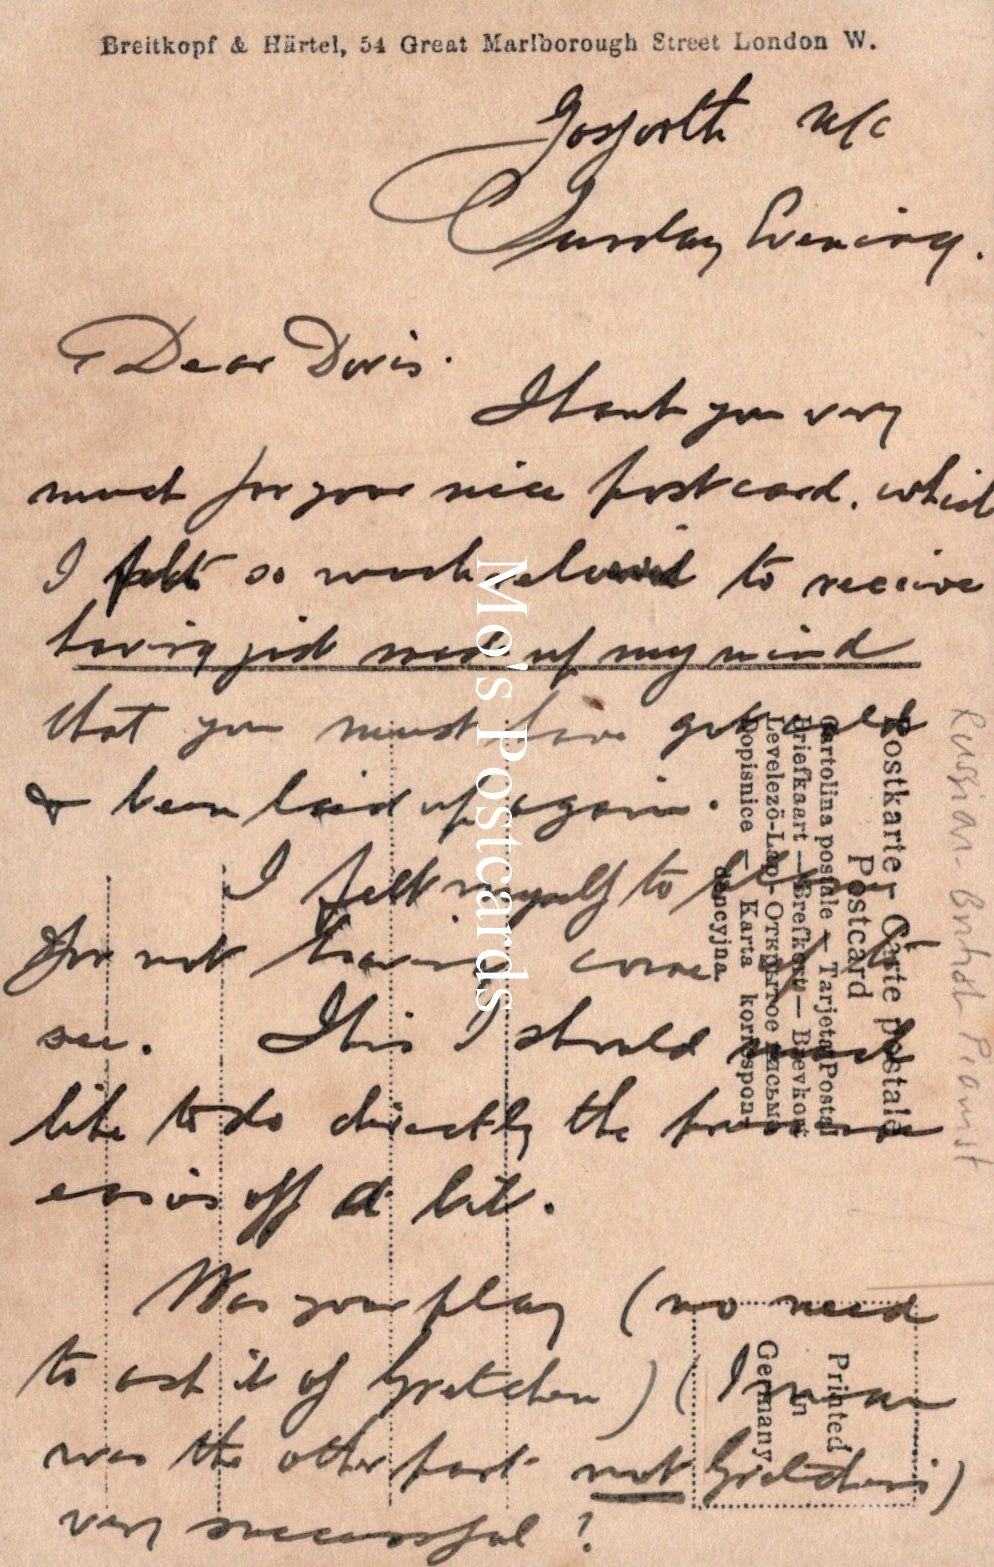 Breitkopf & Härtel, 54 Great Marlborough Street London W.
Gosforth N/c
Sunday Evening.
Dear Doris.
Thank you very
much for your nice post card, which
I felt so much relieved to receive
having just made up my mind
that you must have got cold
& been laid up again.
I felt myself to blame
for not having come up to
see. This I should much
like to do directly the pressure
eases off a bit.
Was your play (no need
to ask it of Gretchen) (I mean
was the other part not Gretchen's)
very successful?
Postkarte - Carte postale
Postcard
Cartolina postale — Tarjeta Postal
Briefkaart — Brefkort — Brevkort
Levelező-Lap - Открытое письмо
Dopisnice — Karta korrespon-
dencyjna.
Printed
in
Germany
Russian-British Pianist
Mo's Postcards